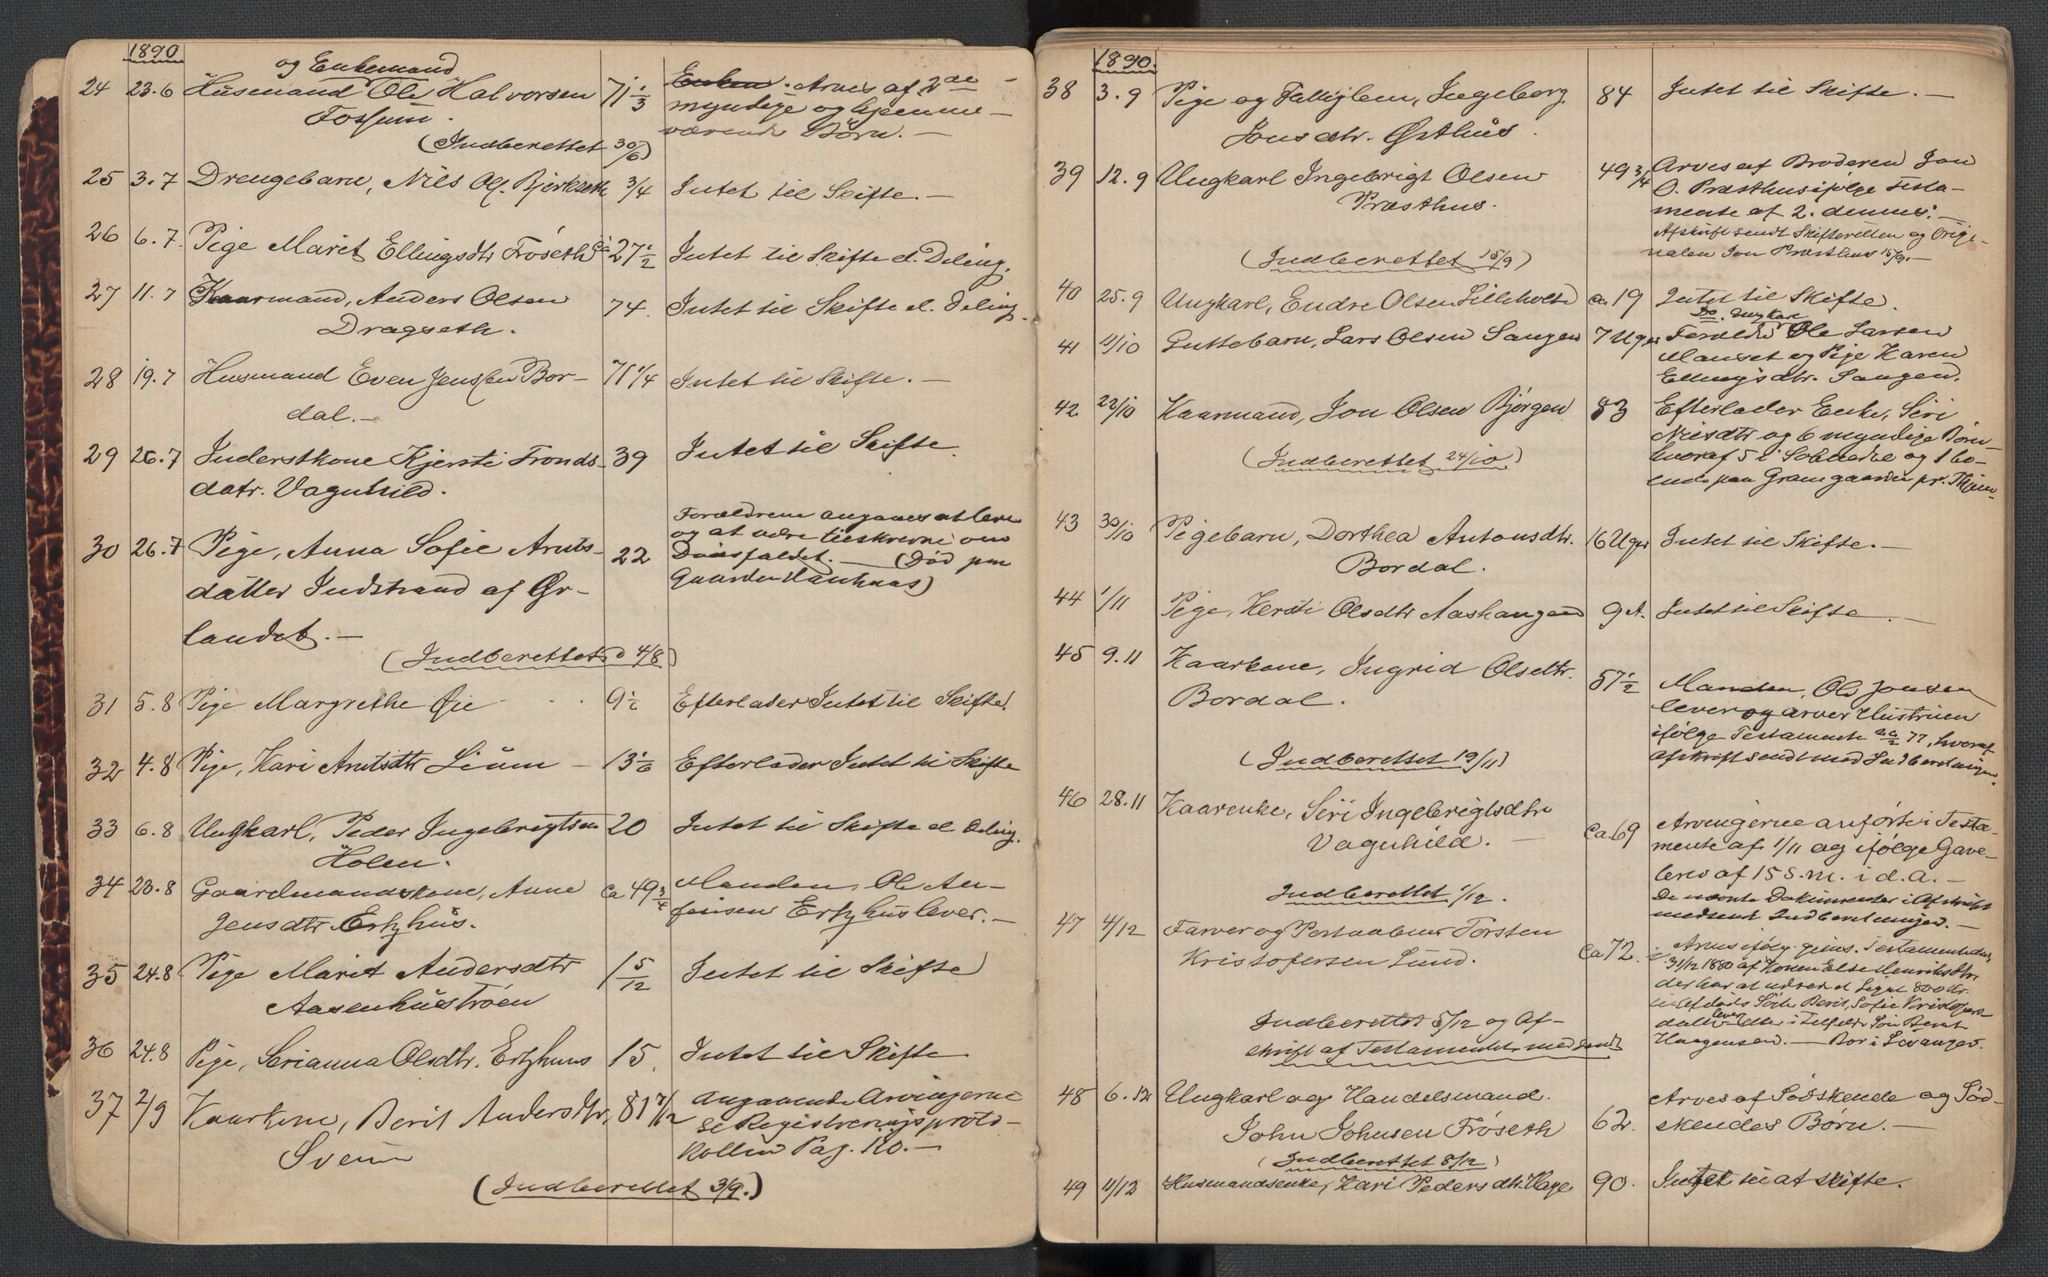 1890
og Enkemand
24 23.6 Husmand Ole Halvorsen 71 1/3 Enken. Arves af 2de
Fossum. myndige og hjemme-
værende Børn. —
(Indberettet 30/6)
25 3.7 Drengebarn, Nils Ol. Bjerkseth 3/4 Intet til Skifte. —
26 6.7. Pige Marit Ellingsdtr Frøseth ca 27 1/2 Intet til Skifte el. Deling.
27 11.7 Kaarmand, Anders Olsen 74. Intet til Skifte el. Deling.
Dragseth.
28 19.7 Husmand Even Jensen Bor- 71 1/4 Intet til Skifte. —
dal. —
29 26.7 Inderstkone Kjersti Tronds- 39 Intet til Skifte.
datr. Vagnhild.
30 26.7 Pige, Anna Sofie Arnts- 22 Forældrene angaves at leve
datter Indstrand af Ør- og at være tilskrevne om
landet. — Dødsfaldet. — (Død paa
Gaarden Haukaas)
(Indberettet 4/8)
31 5.8 Pige Margrethe Øie 9 1/2 Efterlader Intet til Skifte.
32 4.8 Pige, Kari Arntsdtr Lium — 13 1/6 Efterlader Intet til Skifte
33 6.8 Ungkarl, Peder Ingebrigtsen 20 Intet til Skifte el Deling.
Holen.
34 23.8 Gaardmandskone, Anne ca 49 3/4 Manden, Ole An-
Jensdtr Ertzhus. Ertzhus lever. —
35 24.8 Pige Marit Andersdtr 1 5/12 Intet til Skifte
Aasenhustrøen
36 24.8 Pige, Serianna Olsdtr. Ertzhuus 15. Intet til Skifte
37 2/9 Kaarkone, Berit Andersdtr, 81 7/12 Angaaende Arvingerne
Sveen se Registreringsproto-
kollen Pag. 110. —
(Indberettet 3/9.)
1890.
38 3.9 Pige og Fattiglem, Ingeborg 84 Intet til Skifte. —
Jonsdtr. Østhus.
39 12.9 Ungkarl Ingebrigt Olsen 49 3/4 Arves af Broderen Jon
Præsthus. O. Præsthus ifølge Testa-
mente af 2. dennes. —
Afskrift sendt Skifteretten og Origi-
nalen Jon Præsthus 15/9. —
(Indberettet 15/9)
40 25.9 Ungkarl, Endre Olsen Lilleholte ca 19 Intet til Skifte.
41 4/10 Guttebarn, Lars Olsen Sangen 7 Uger Do. Ungkarl
Forældre Ole Larsen
og Pige Karen
Ellingsdtr. Sangen.
42 22/10 Kaarmand, Jon Olsen Bjørgen 83 Efterlader Enke, Siri
Nilsdtr og 6 myndige Børn
hvoraf 5 i Soknedal og 1 bo-
ende paa Gramgaarden pr. Thjem
(Indberettet 24/10)
43 30/10 Pigebarn, Dorthea Antonsdtr. 16 Uger Intet til Skifte. —
Bordal.
44 1/11 Pige, Kersti Olsdtr Aashaugen 9 A. Intet til Skifte. —
45 9.11 Kaarkone, Ingrid Olsdtr. 57 1/2 Manden, Ole Jonsen
Bordal. lever og arver Hustruen
ifølge Testamente 77, hvoraf
Afskrift sendt med Indberetningen.
(Indberettet 19/11)
46 28.11 Kaarenke, Siri Ingebrigtsdtr ca 69 Arvingerne anførte i Testa-
Vagnhild. — mente af 1/11 og ifølge Gave-
brev af 15 s.m. i d.A. —
De nævnte Dokumenter i Afskrift
medsendt Indberetningen. —
Indberettet 1/12.
47 4/12 Farver og Postaabner Torsten ca 72. Arves ifølg. gjens. Testamente
Kristofersen Lund. 31/12 1880 af Konen Else Henriksdtr
der har at udrede et Legat 800 Kr.
til Afdødes Søster Berit Sofie Kristofers-
datter lever i Tilfælde Søn Bernt
Haagensen. — Bor i Levanger.
Indberettet 5/12 og Af-
skrift af Testamentet medsendt
48 6.12 Ungkarl og Handelsmand. 62. Arves af Sødskende og Sød-
John Johnsen Frøseth skendes Børn. —
(Indberettet 8/12)
49 11/12 Husmandsenke, Kari Pedersdtr. Hage 90. Intet til at skifte.